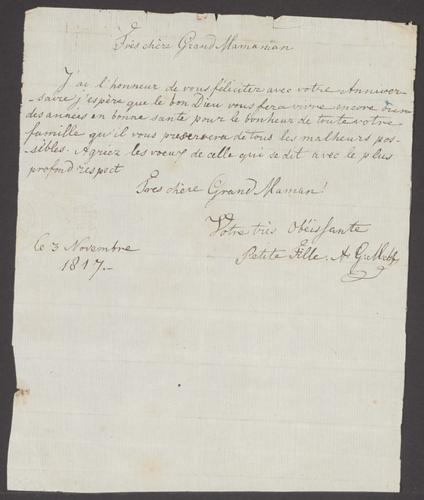 Très chère Grand Mamanian
J'ai l'honneur de vous féliciter avec votre Anniver-
saire j'espère que le bon Dieu vous fera vivre encore bien
des années en bonne santé pour le bonheur de toute votre
famille qu'il vous preservera de tous les malheurs pos-
sibles. Agriez les voeux de celle qui se dit avec le plus
profond respect
Très chère Grand Maman!
Votre très Obéissante
Petite Fille. A.
le 3 Novembre
1817.-